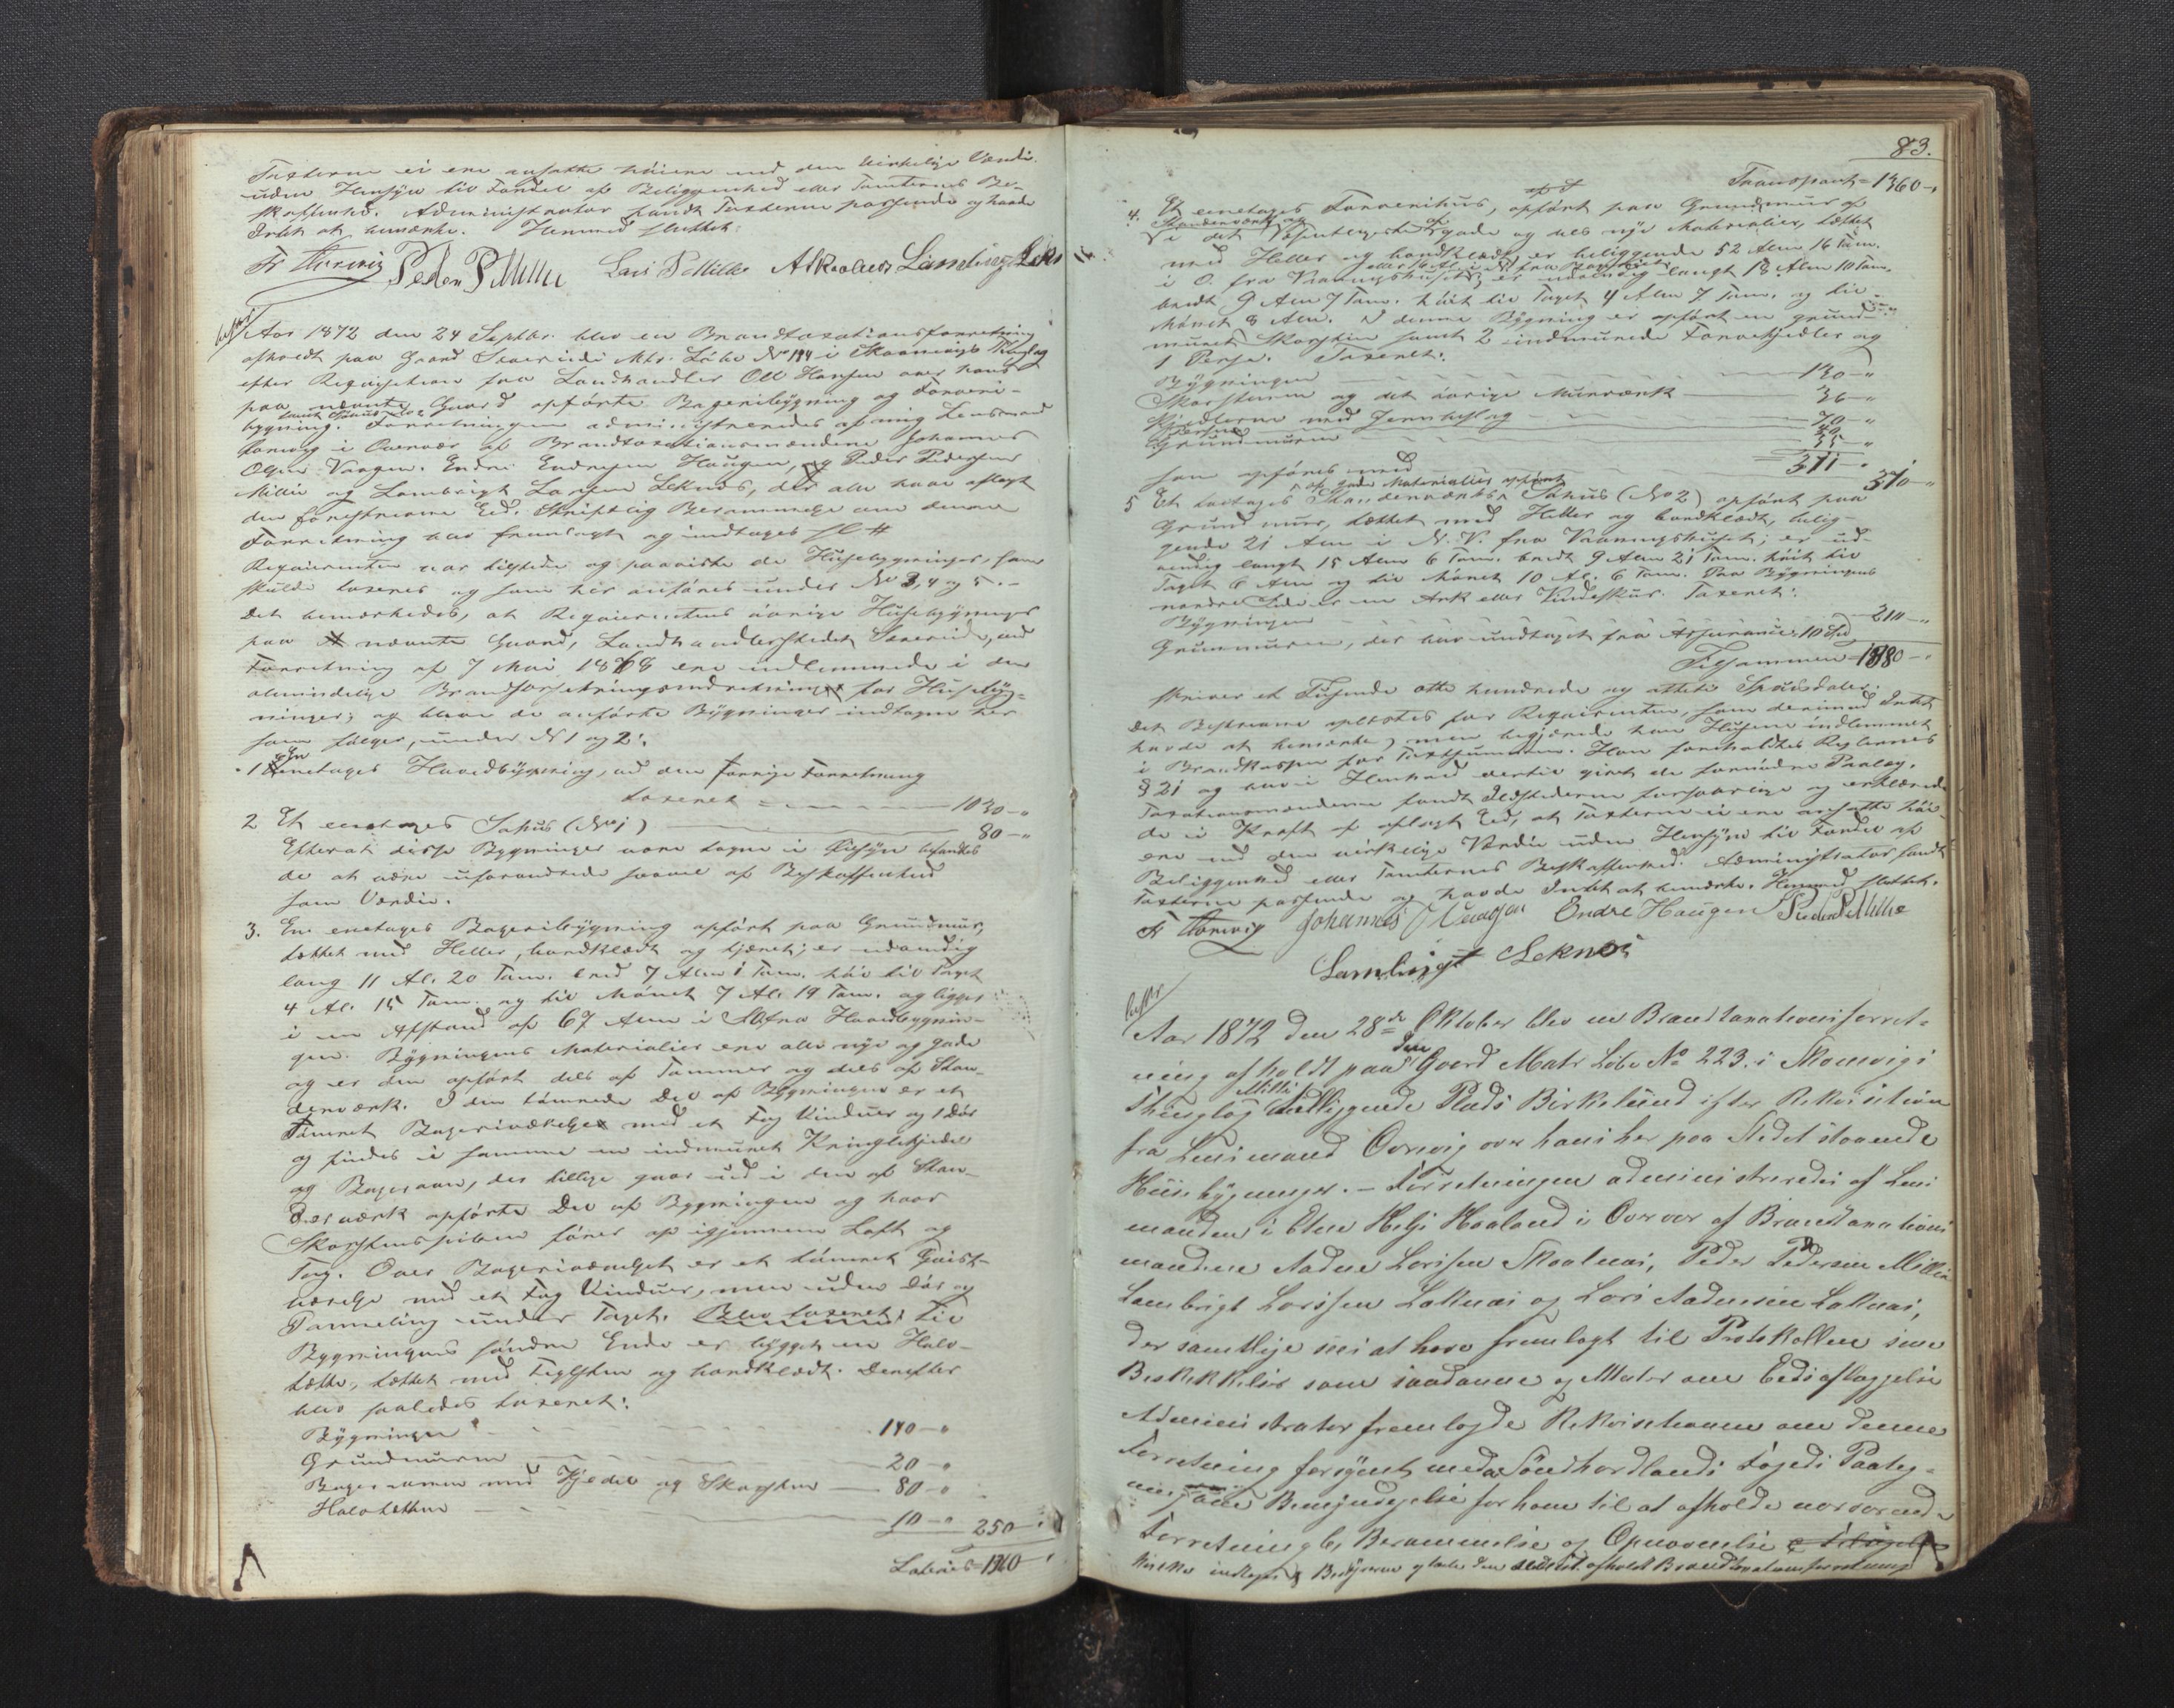 Taxterne ei ere ansatte høiere end den virkelige Værdi
uden Hensyn til Fordel af Beliggenhed eller Tomternes Be-
skaffenhed. Administrator fandt Taxterne passende og havde
Intet at bemærke. Hermed sluttet.
Peder P Millie Lars Millie
Aar 1872 den 24 Septbr. blev en Brandtaxationsforretning
afholdt paa Gaard Mtr. Løbe No 194 i Skaanevigs Thinglag
efter Requisition fra Landhandler Ole Hansen over hans
paa nævnte Gaard opførte Bageribygning og Farveri-
bygning. Forretningen administreredes af mig Lensmand
i Overvær af Brandtaxationsmændene Johannes
Olsen Vaagen, Endre Endresen Haugen, og Peder Pedersen
Millie og Lambrigt Larsen Leknes, der alle have aflagt
den foreskrevne Eed. Skriftlig Berammelse om denne
Forretning blev fremlagt og indtages
Requirenten var tilstede og paaviste de Husebygninger, som
skulde taxeres og som her anføres under No 3, 4 og 5.-
Det bemærkedes, at Requirentens øvrige Husebygninger
paa nævnte Gaard, Landhandlerstedet ved
Forretning af 7 Mai 1868 ere indlemmede i den
almindelige Brandforsikringsindretning for Husebyg-
ninger; og bleve de anførte Bygninger indtagne her
som følger, under No 1 og 2:
1 En enetages Hovedbygning, ved den forrige Forretning
taxeret 1030-"
2 Et enetages Søhus (No 1) 80-"
Efterat disse Bygninger vare tagne i Øiesyn befandtes
de at være uforandrede saavel af Beskaffenhed
som Værdi.
3. En enetages Bageribygning opført paa Grundmur,
tækket med Heller, bordklædt og tjæret; er udvendig
lang 11 Al. 20 Tom. bred 7 Alen 1 Tom. høi til Taget
4 Al. 15 Tom. og til Mønet 7 Al. 19 Tom. og ligger
i en Afstand af 67 Alen i fra Hovedbygnin-
gen. Bygningens Materialier ere alle nye og gode
og er den opført dels af Tømmer og dels af Stan-
derværk. I den tømrede Del af Bygningen er et
Tømret Bageriværelse med et Fag Vinduer og 1 Dør
og findes i samme en indmuret Kringlekjedel
og Bagerovn, der tillige gaar ud i den af Stan-
derværk opførte Del af Bygningen og hvor
Skorstenspiben føres op igjennem Loft og
Tag. Over Bageriværelset er et tømret Qvist-
værelse med et Fag Vinduer, men uden Dør og
Panneling under Taget. Blev taxeret: Til
Bygningens søndre Ende er bygget en Halv-
tækte, tækket med Teglsten og bordklædt. Derefter
blev saaledes taxeret:
Bygningen 140-"
Grundmuren 20-"
Bagerovnen med Kjedel og Skorsten 80-"
Halvtækten 10-" 250-"
Lateris 1360-"
83.
Transport 1360-"
4. Et enetages Farverihus, opført paa Grundmur af
Standerværk og
i det Væsentligste af gode og dels nye Materialier, tækket
med Heller og bordklædt er beliggende 52 Alen 16 Tom.
i O. fra Vaaningshuset; er udvendig langt 18 Alen 10 Tom.
bredt 9 Alen 7 Tom. høit til Taget 4 Alen 7 Tom. og til
Mønet 8 Alen. I denne Bygning er opført en grund-
muret Skorsten samt 2 indmurede Farvekjedler og
1 Perse. Taxeret:
Bygningen
Skorstenen og det øvrige Murværk 36-"
Kjedlerne med Jernbeslag 70-"
Grundmuren 35-"
som opføres med 310-"
5 Et toetages Standerværks Søhus (No 2) opført paa
af gode Materialier opført
Grundmur, tækket med Heller og bordklædt, belig-
gende 21 Alen i N.V. fra Vaaningshuset; er ud-
vendig langt 15 Alen 6 Tom. bredt 9 Alen 21 Tom. høit til
Taget 6 Alen og til Mønet 10 Al. 6 Tom. Paa Bygningens
nordre Side er en Ark eller Vindeskur. Taxeret:
Bygningen 210-"
Grunmuren, der blev undtaget fra Assurance, 10 Spd
Tilsammen 1880-"
skriver et Tusinde otte hundrede og otteti Speciedaler.
Det Beskrevne oplæstes for Requirenten som derimod Intet
havde at bemærke, men begjærede han Husene indlemmet
i Brandkassen for Taxtsummen. Han foreholdtes Reglernes
§ 21 og blev i Henhold dertil givet de fornødne Paalæg.
Taxationsmændene fandt Ildstederne forsvarlige og erklærede
de i Kraft af aflagt Eed, at Taxterne ei ere ansatte høi-
ere end den virkelige Værdie uden Hensyn til Fordel af
Beliggenhed eller Tomternes Beskaffenhed. Administrator fandt
Taxterne passende og havde Intet at bemærke. Hermed sluttet.
Johannes Vaagen Endre Haugen Peder P Millie
Lambrigt Leknes
Aar 1872 den 28de Oktober blev en Brandtaxationsforret-
ning afholdt paa den Gaard Matr Løbe No 223 i Skonevigs
Thinglag Millie tilliggende Plads Birkelund efter Rekvisition
fra Lensmand Overvig over hans her paa Stedet staaende
Huusbygninger. - Forretningen administreredes af Lens
manden i Etne Helje Haaland i Overvær af Brandtaxations
mændene Aadne Larsen Skaalnes, Peder Pedersen Millie
Lambrigt Larssen Løknæs og Lars Aadnesen Løknæs,
der samtlige sees at have fremlagt til Protokollen sine
Beskikkelser som saadanne og Attester om Eedsaflæggelse
Administrator fremlagde Rekvisitionen om denne
Forretning forsynet med Søndhordlands Fogeds Paateg-
ning om Bemyndigelse for ham til at afholde nærværende
Forretning, Berammelse og Opnævnelse
indtages